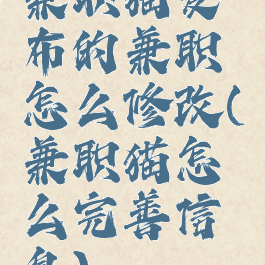 兼职猫发
布的兼职
怎么修改(
兼职猫怎
么完善信
息)